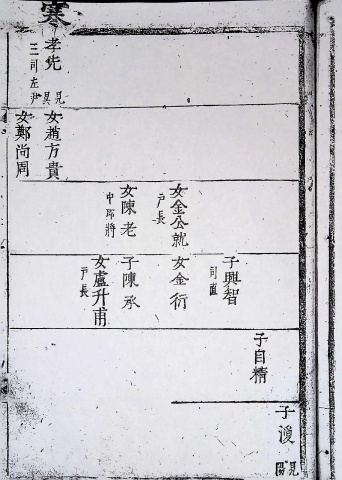 寒
孝先
三司左尹
女趙方貴
女鄭尚周
女金公就
戶長
女陳老
中郎將
子興智
司直
女金衍
子陳承
女盧升甫
戶長
子自精
子
見